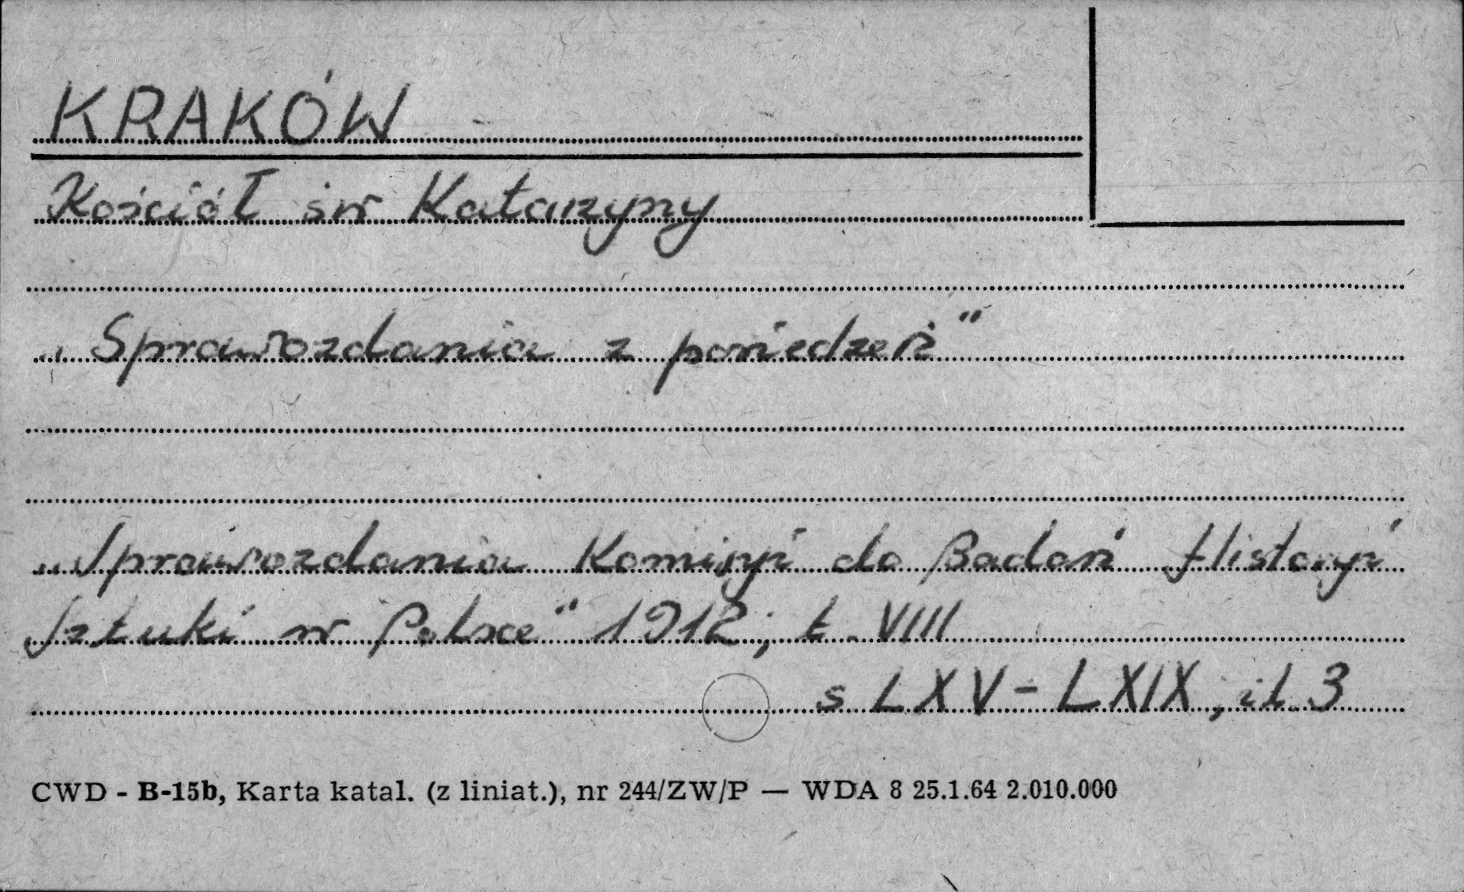 KRAKÓW
Kościół św Katarzyny
„Sprawozdania z posiedzeń"
„Sprawozdania Komisyi do Badań Historyi
Sztuki w Polsce" 1912; t. VIII
s LXV-LXIX, il. 3
CWD - B-15b, Karta katal. (z liniat.), nr 244/ZW/P — WDA 8 25.1.64 2.010.000